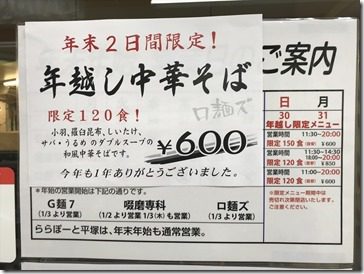 年末2日間限定!
年越し中華そば
ロ麺ズ
限定120食!
小羽、羅臼昆布、しいたけ、
サバ・うるめのダブルスープの
和風中華そばです。
¥600
今年も1年ありがとうございました。
*年始の営業開始は下記の通りです。
G麺7
(1/3より営業)
啜磨専科
(1/2より営業 1/3(木)も営業)
ロ麺ズ
(1/3より営業)
ららぽーと平塚は、年末年始も通常営業。
ご案内
日 月
30 31
年越し限定メニュー
営業時間 11:30~20:00
限定150食 ¥600
営業時間 11:30~14:30
限定120食 ¥850
営業時間 11:00~20:00
限定120食 ¥600
*限定メニュー期間中は
売切れ次第閉店いたします。
ご注意ください。